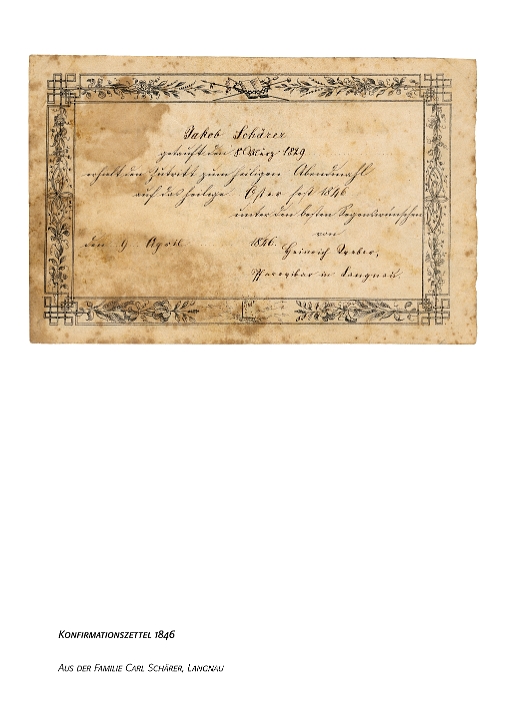 Jakob Schärer
getauft den 8. März 1829
erhielt den Zutritt zum heiligen Abendmahl
auf das heilige Osterfest 1846
unter den besten Segenswünschen
von
den 9. April 1846. Heinrich
Pfarrvikar in Langnau.
Konfirmationszettel 1846
Aus der Familie Carl Schärer, Langnau